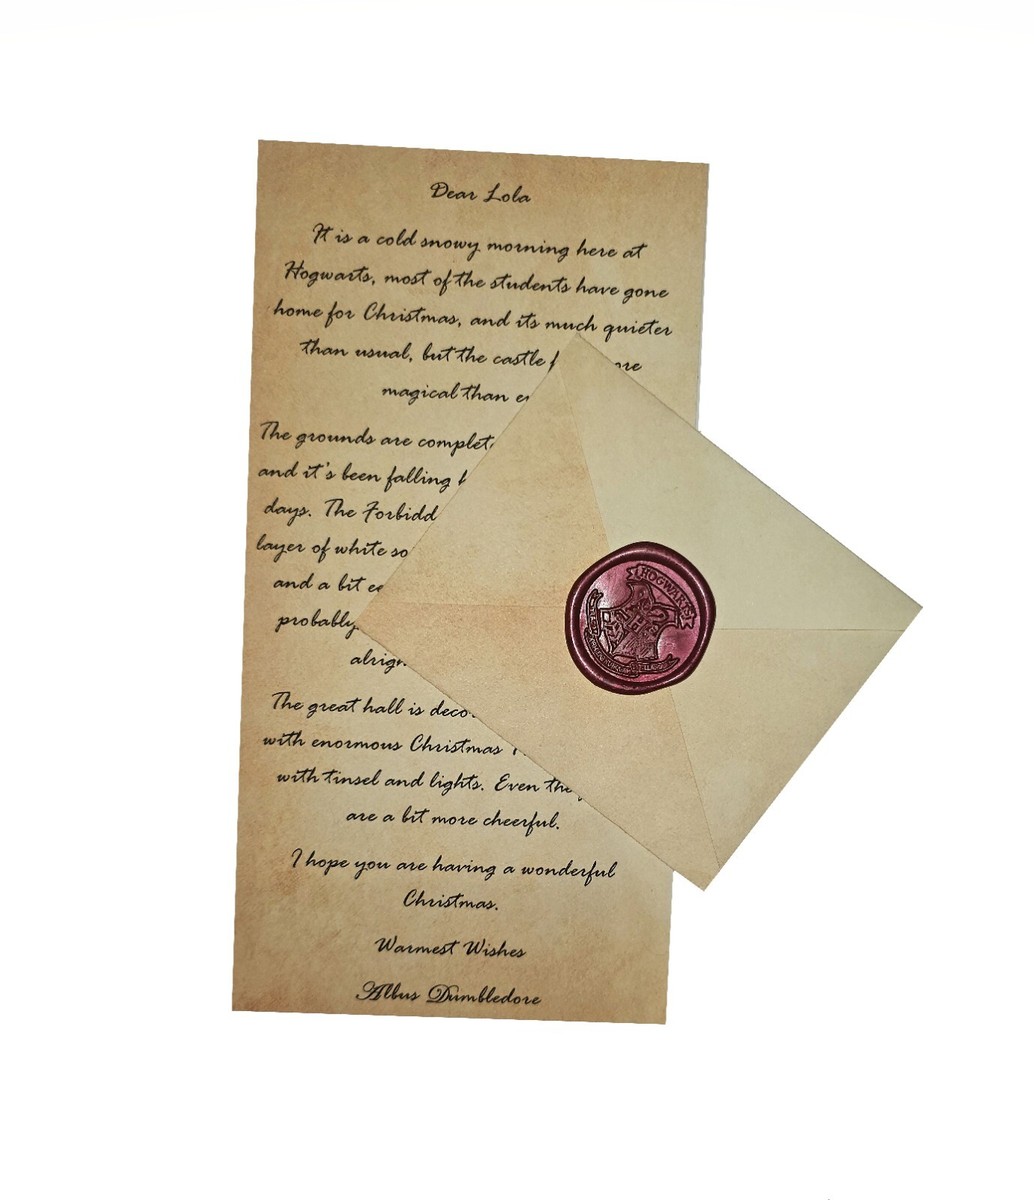 Dear Lola
It is a cold snowy morning here at
Hogwarts, most of the students have gone
home for Christmas, and its much quieter
than usual, but the castle
magical than
The grounds are
and it's been falling
days. The
layer of white
and a bit
probably
The great hall is
with enormous Christmas
with tinsel and lights. Even
are a bit more cheerful.
I hope you are having a wonderful
Christmas.
Warmest Wishes
Albus Dumbledore
HOGWARTS